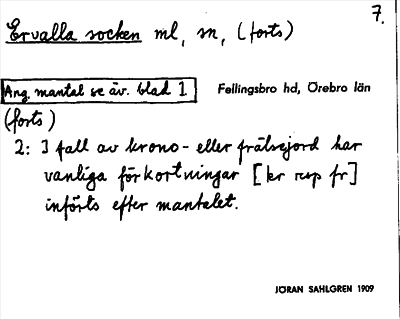 7.
Ervalla socken ml, sn, (forts)
Ang. mantal se äv. blad 1
Fellingsbro hd, Örebro län
(forts)
2: I fall av krono- eller frälsejord har
vanliga förkortningar [kr resp fr]
införts efter mantalet.
JÖRAN SAHLGREN 1909